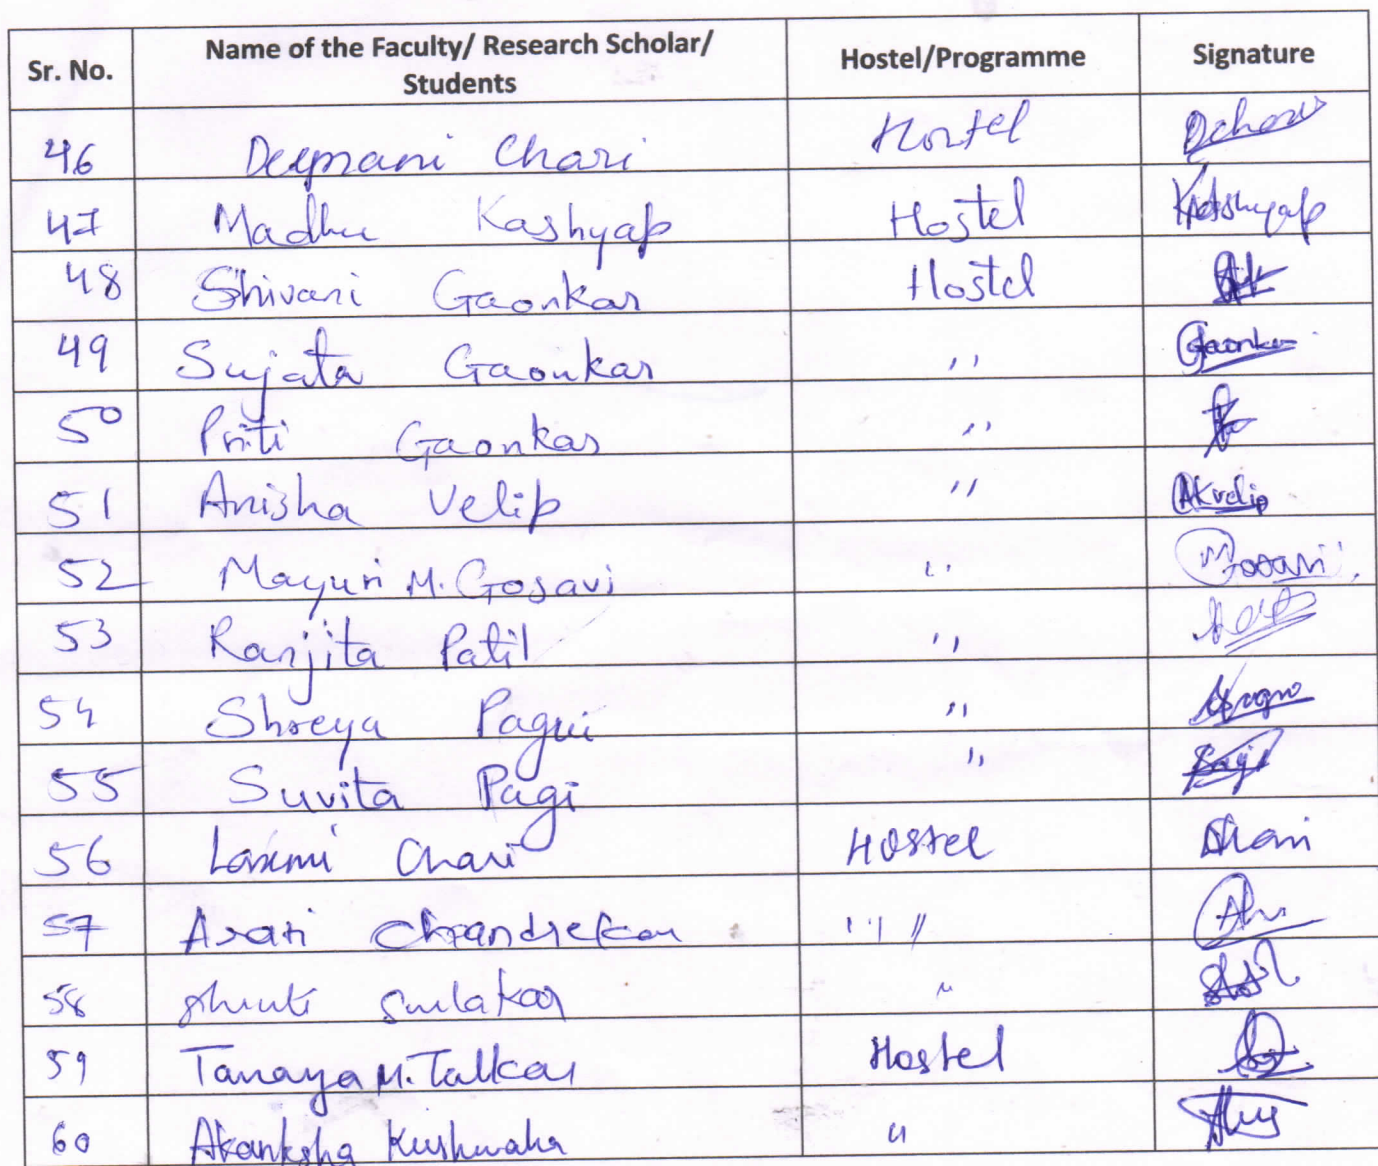 Sr. No. Name of the Faculty/ Research Scholar/ Students Hostel/Programme Signature
46 Deepmani Chari Hostel
47 Madhu Kashyap Hostel Kashyap
48 Shivani Gaonkar Hostel
49 Sujata Gaonkar ,, Gaonkar
50 Priti Gaonkar ,,
51 Anisha Velip ,, AKvelip
52 Mayuri M. Gosavi ,,
53 Ranjita Patil ,,
54 Shreya Pagui ,,
55 Suvita Pagi ,,
56 Laxmi Chari Hostel
57 Arati Chandrekar ,, //
58 Shruti ,,
59 Tanaya M. Talkar Hostel
60 Akanksha Kushwaha ,,